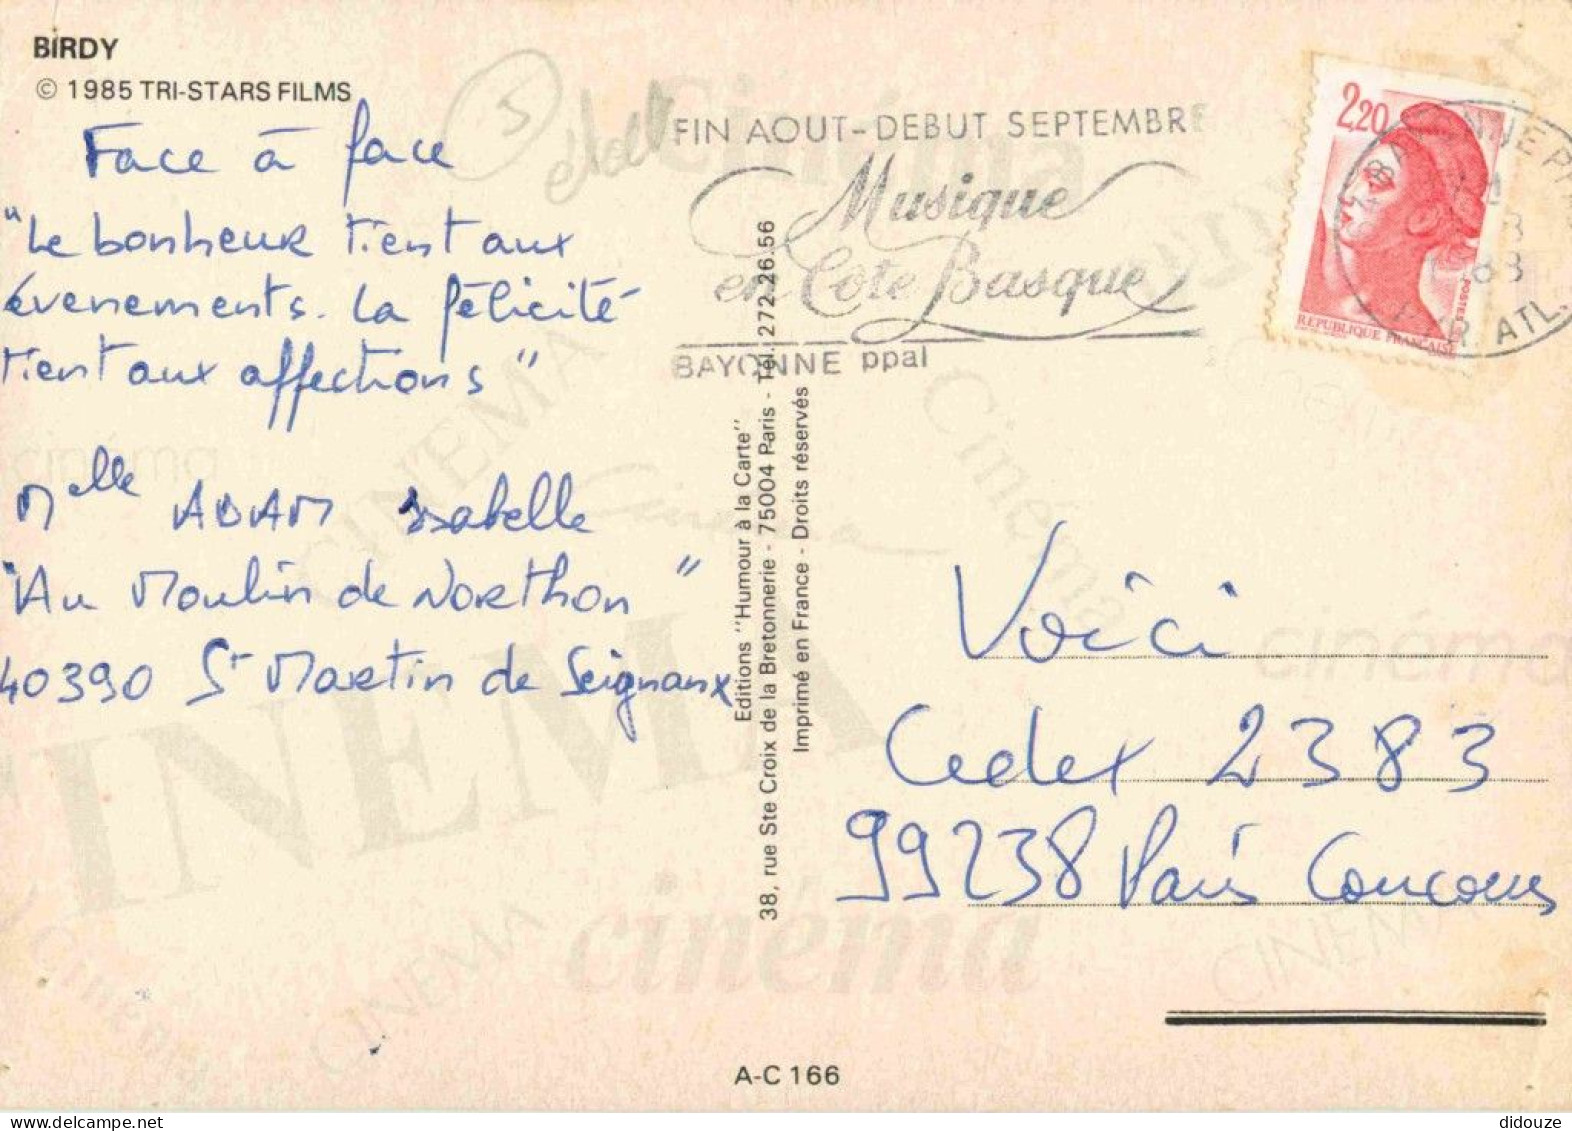 BIRDY
© 1985 TRI-STARS FILMS
5
Face à face
"Le bonheur tient aux
évenements. La félicité
tient aux affections"
Melle ADAM Isabelle
"Au Moulin de Northon"
40390 St Martin de Seignanx
FIN AOUT-DEBUT SEPTEMBRE
Musique
en Côte Basque
BAYONNE ppal
2,20
POSTES
REPUBLIQUE FRANÇAISE
Editions "Humour à la Carte"
38, rue Ste Croix de la Bretonnerie - 75004 Paris - Tél. 272.26.56
Imprimé en France - Droits réservés
Voici
Cedex 2383
99238 Paris Concours
A-C 166
CINEMA
cinéma
Cinéma
CINEMA
Cinéma
cinéma
cinéma
CINEMA
CINEMA
Cinéma
didouze